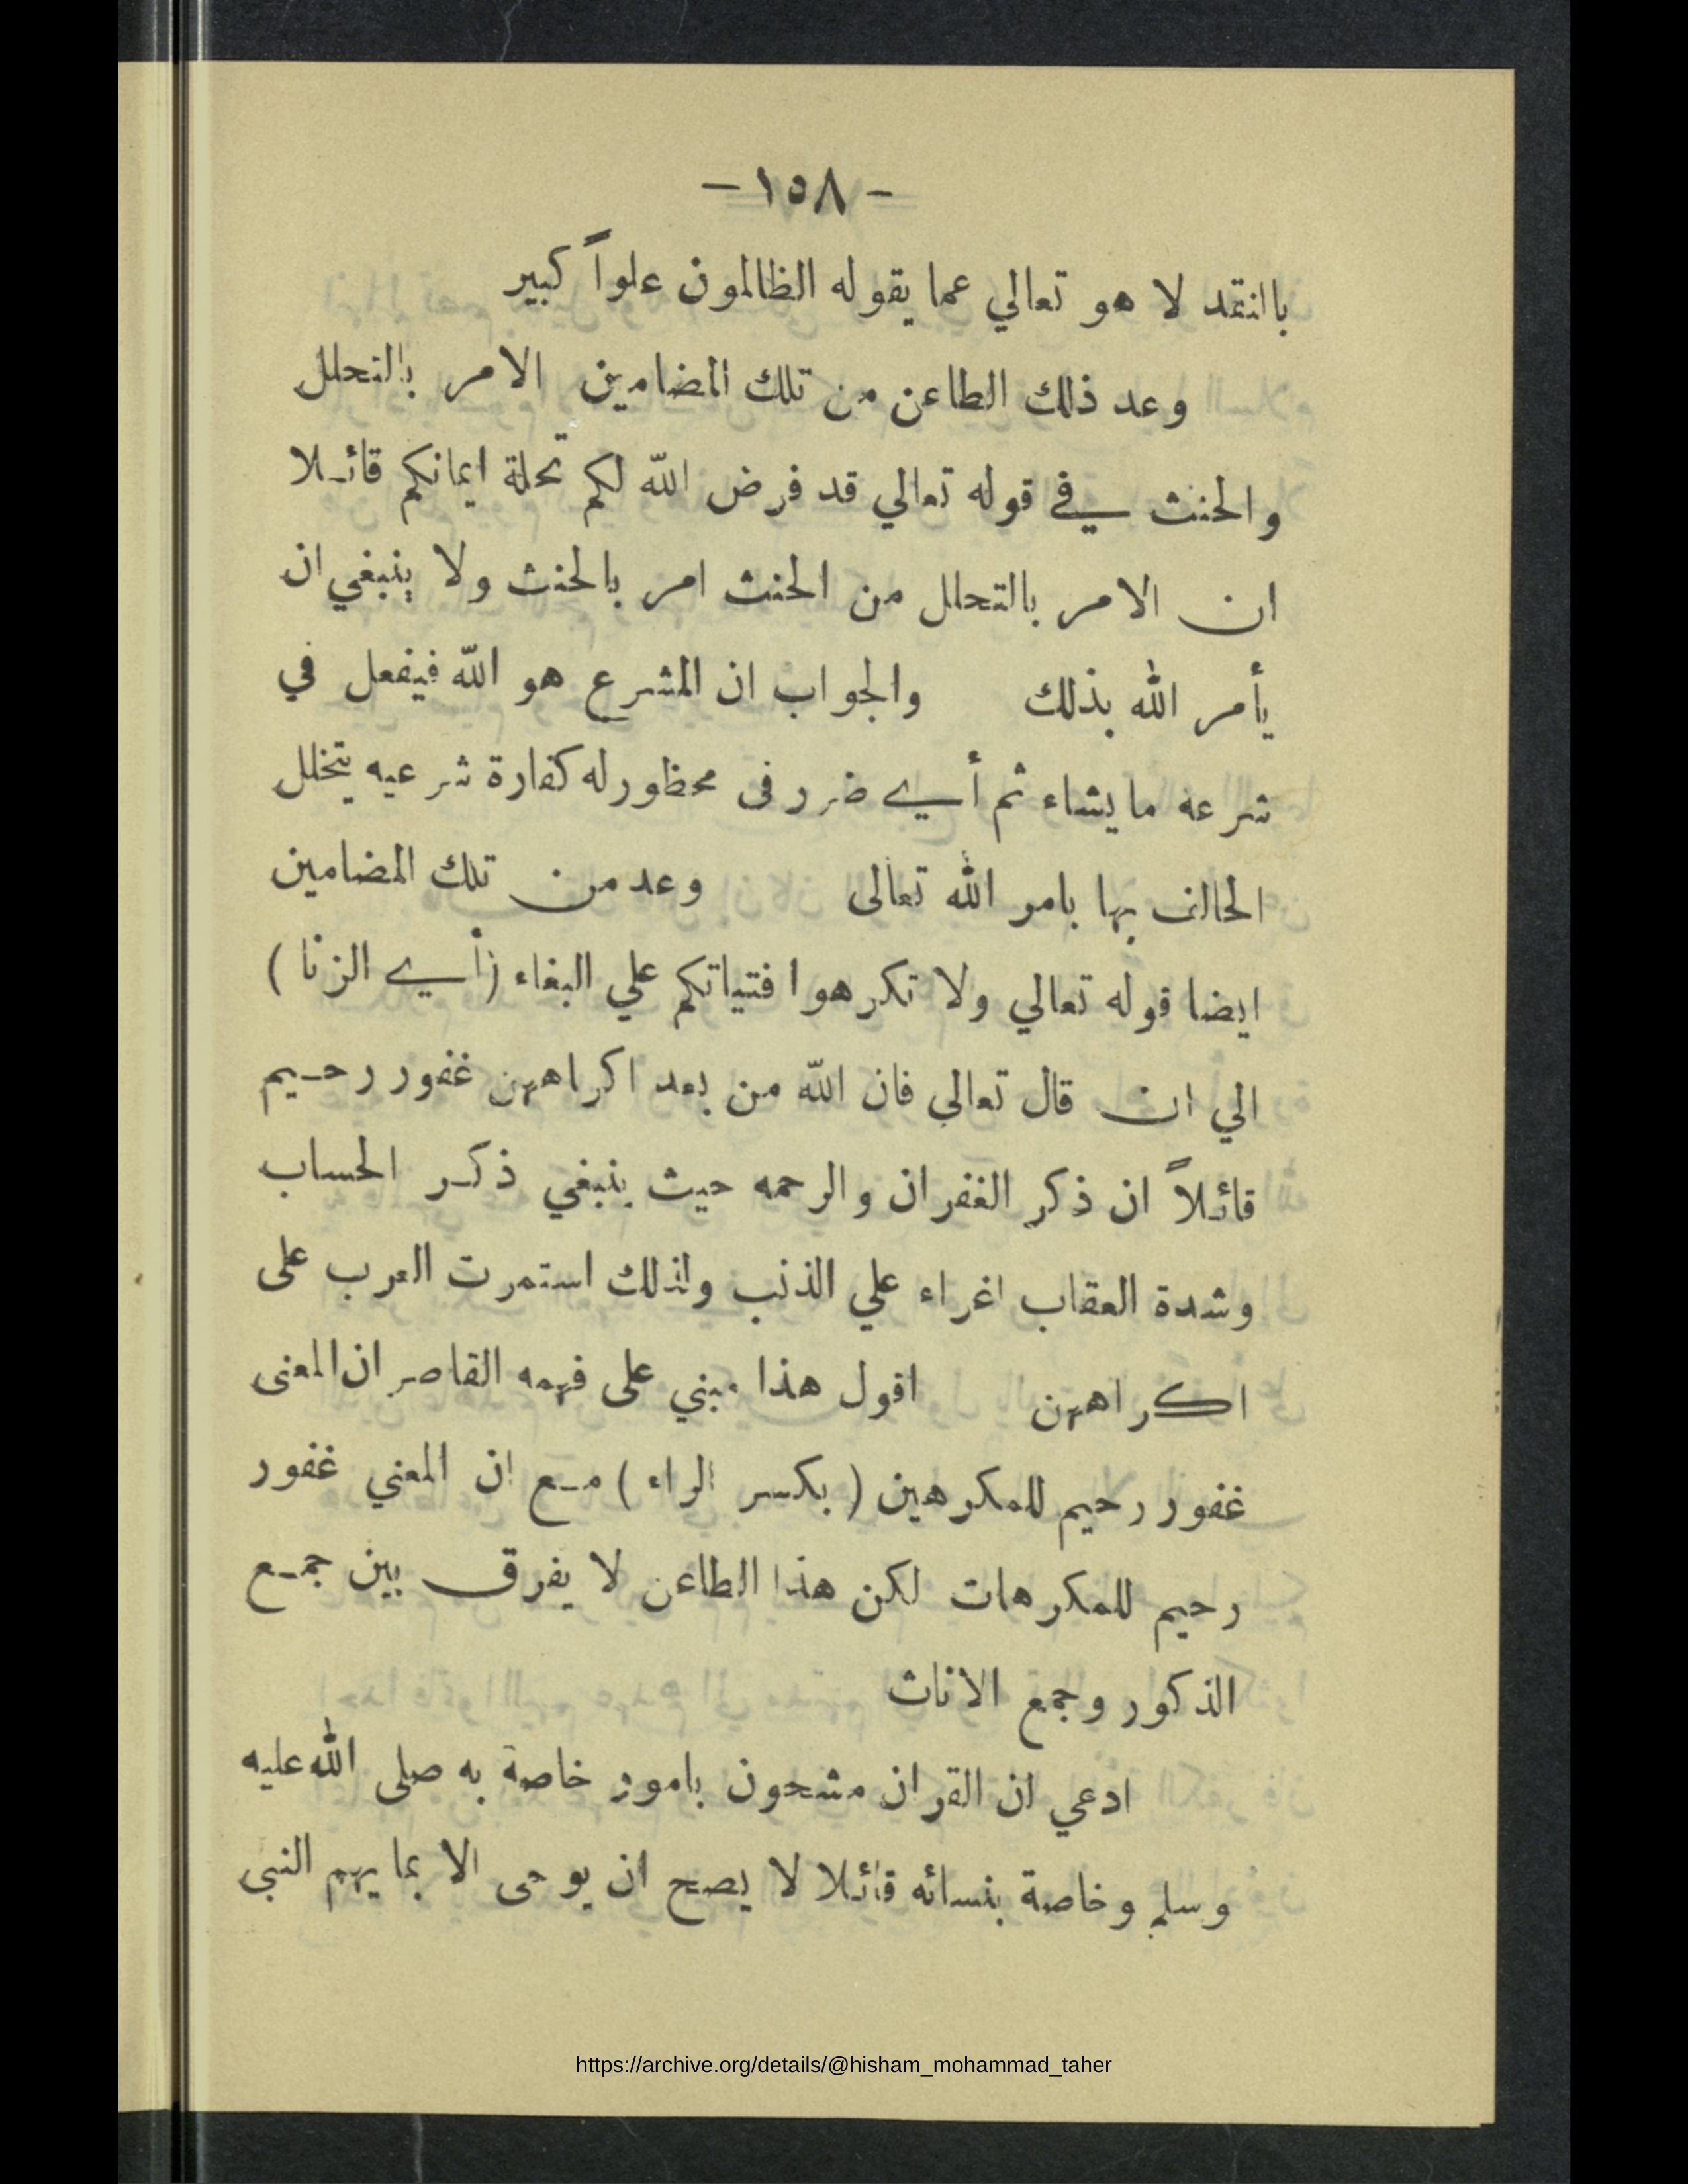 - ١٥٨ -
باانتقد لا هو تعالي عما يقوله الظالمون علواً كبير
وعد ذلك الطاعن من تلك المضامين الامر بالتحلل
والحنث في قوله تعالي قد فرض الله لكم تحلة ايمانكم قائلا
ان الامر بالتحلل من الحنث امر بالحنث ولا ينبغي ان
يأمر الله بذلك والجواب ان المشرع هو الله فيفعل في
شرعه ما يشاء ثم أي ضرر فى محظور له كفارة شرعيه يتخلل
الحالف بها بامر الله تعالى وعد من تلك المضامين
ايضا قوله تعالي ولا تكرهوا فتياتكم علي البغاء (أي الزنا)
الي ان قال تعالي فان الله من بعد اكراههن غفور رحيم
قائلاً ان ذكر الغفران والرحمه حيث ينبغي ذكر الحساب
وشدة العقاب اغراء علي الذنب ولذلك استمرت العرب على
اكراههن اقول هذا مبني على فهمه القاصر ان المعنى
غفور رحيم للمكرهين (بكسر الراء) مع ان المعني غفور
رحيم للمكرهات لكن هذا الطاعن لا يفرق بين جمع
الذكور وجمع الاناث
ادعي ان القران مشحون بامور خاصة به صلى الله عليه
وسلم وخاصة بنسائه قائلا لا يصح ان يوحى الا بما يهم النبى
https://archive.org/details/@hisham_mohammad_taher